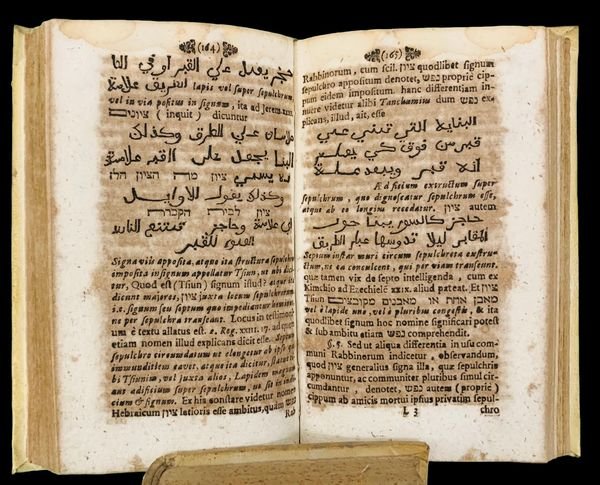 (164)
حجر يعمل علي القبر او في
الطريق علامة lapis vel super sepulchrum,
vel in via positus in signum, ita ad Jerem.
ציונים (inquit) dicuntur
علي الطرق وكذلك
البنا يجعل علي القبر علامة
יסמי ציון מה הציון הלז
وكذلك يقول الاوايل
ציון לבית הקברות
علامة وحاجز
للقبر
Signa viis apposita, atque ita structura sepulchro
imposita in signum appellatur Tsiun, ut ibi
tur, Quod est (Tsiun) signum istud? atque ita
dicunt majores, ציון juxta locum sepulchrorum
i.e. signum seu septum quo impediantur homines
ne per sepulchra transeant. Locus in testimoni-
um è textu allatus est. 2. Reg. XXIII. 17. ad quem
etiam nomen illud explicans dicit esse. Septum
sepulchro circumdatum ut elongetur ab ipso qui
immunditiem cavet, atque ita dicitur,
bi Tsiunim, vel juxta alios, Lapidem magnum
aut ædificium super sepulchrum, ut sit in indi-
cium & signum. Ex his constare videtur nomen
Hebraicum ציון latioris esse ambitus, quàm נפש
Rab
(165)
Rabbinorum, cum scil. ציון quodlibet signum
sepulchro appositum denotet, נפש propriè cip-
pum eidem impositum. hanc differentiam in-
nuere videtur alibi Tanchumus dum נפש ex-
plicans, illud, ait, esse
البناية التي تبني علي
قبر من فوق كي يعلم
انه قبر ويبعد منه
Ædificium extructum super
sepulchrum, quo dignoscatur sepulchrum esse,
atque ab eo longius recedatur. ציון autem
حاجز كالسور يبنا حول
المقابر ليلا تدوسها عابر الطريق
Septum instar muri circum sepulchreta exstru-
ctum, ne ea conculcent, qui per viam transeunt.
quæ tamen vix de septo intelligenda, cum ex
Kimchio ad Ezechielē XXIX. aliud pateat. Et ציון
Tsiun מאבן אחת או מאבנים מקובצים
vel è lapide uno, vel è pluribus congestis, & ita
quodlibet signum hoc nomine significari potest
& sub ambitu etiam נפש comprehendit.
§. 5. Sed ut aliqua differentia in usu com-
muni Rabbinorum indicetur, observandum,
quod ציון generalius signa illa, quæ sepulchris
apponuntur, ac communiter pluribus simul cir-
cumdantur, denotet, נפש autem (propriè)
Cippum ab amicis mortui ipsius privatim sepul-
L 3
chro